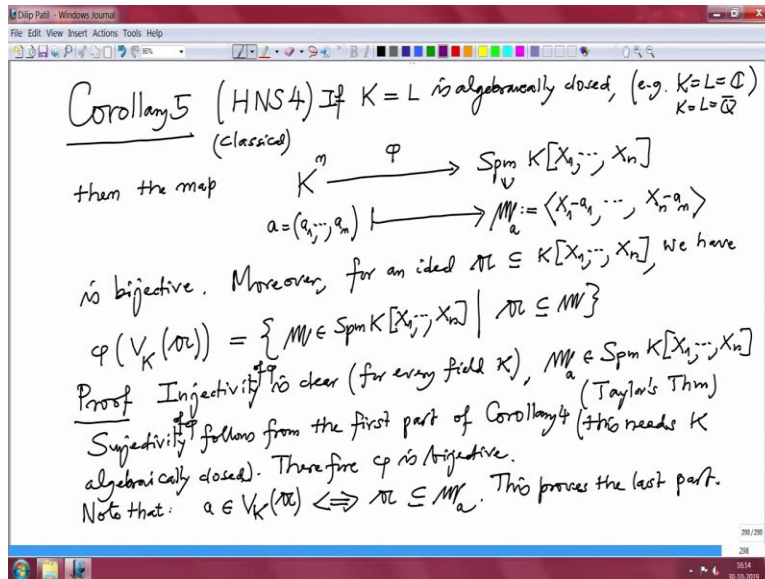 Dilip Patil - Windows Journal
File Edit View Insert Actions Tools Help
Corollary 5 (HNS4) If K = L is algebraically closed, (e.g. K=L=ℂ
(classical) K=L=ℚ̄
then the map K^n —φ→ Spm K[X_1,…,X_n]
a=(a_1,…,a_n) ↦ 𝔪_a := ⟨X_1-a_1, …, X_n-a_n⟩
is bijective. Moreover, for an ideal 𝔞 ⊆ K[X_1,…,X_n], we have
φ(V_K(𝔞)) = {𝔪 ∈ Spm K[X_1,…,X_n] | 𝔞 ⊆ 𝔪}
Proof Injectivity of φ is clear (for every field K), 𝔪_a ∈ Spm K[X_1,…,X_n]
(Taylor's Thm)
Surjectivity of φ follows from the first part of Corollary 4 (this needs K
algebraically closed). Therefore φ is bijective.
Note that: a ∈ V_K(𝔞) ⟺ 𝔞 ⊆ 𝔪_a. This proves the last part.
298/298
298
16:14
30-10-2019